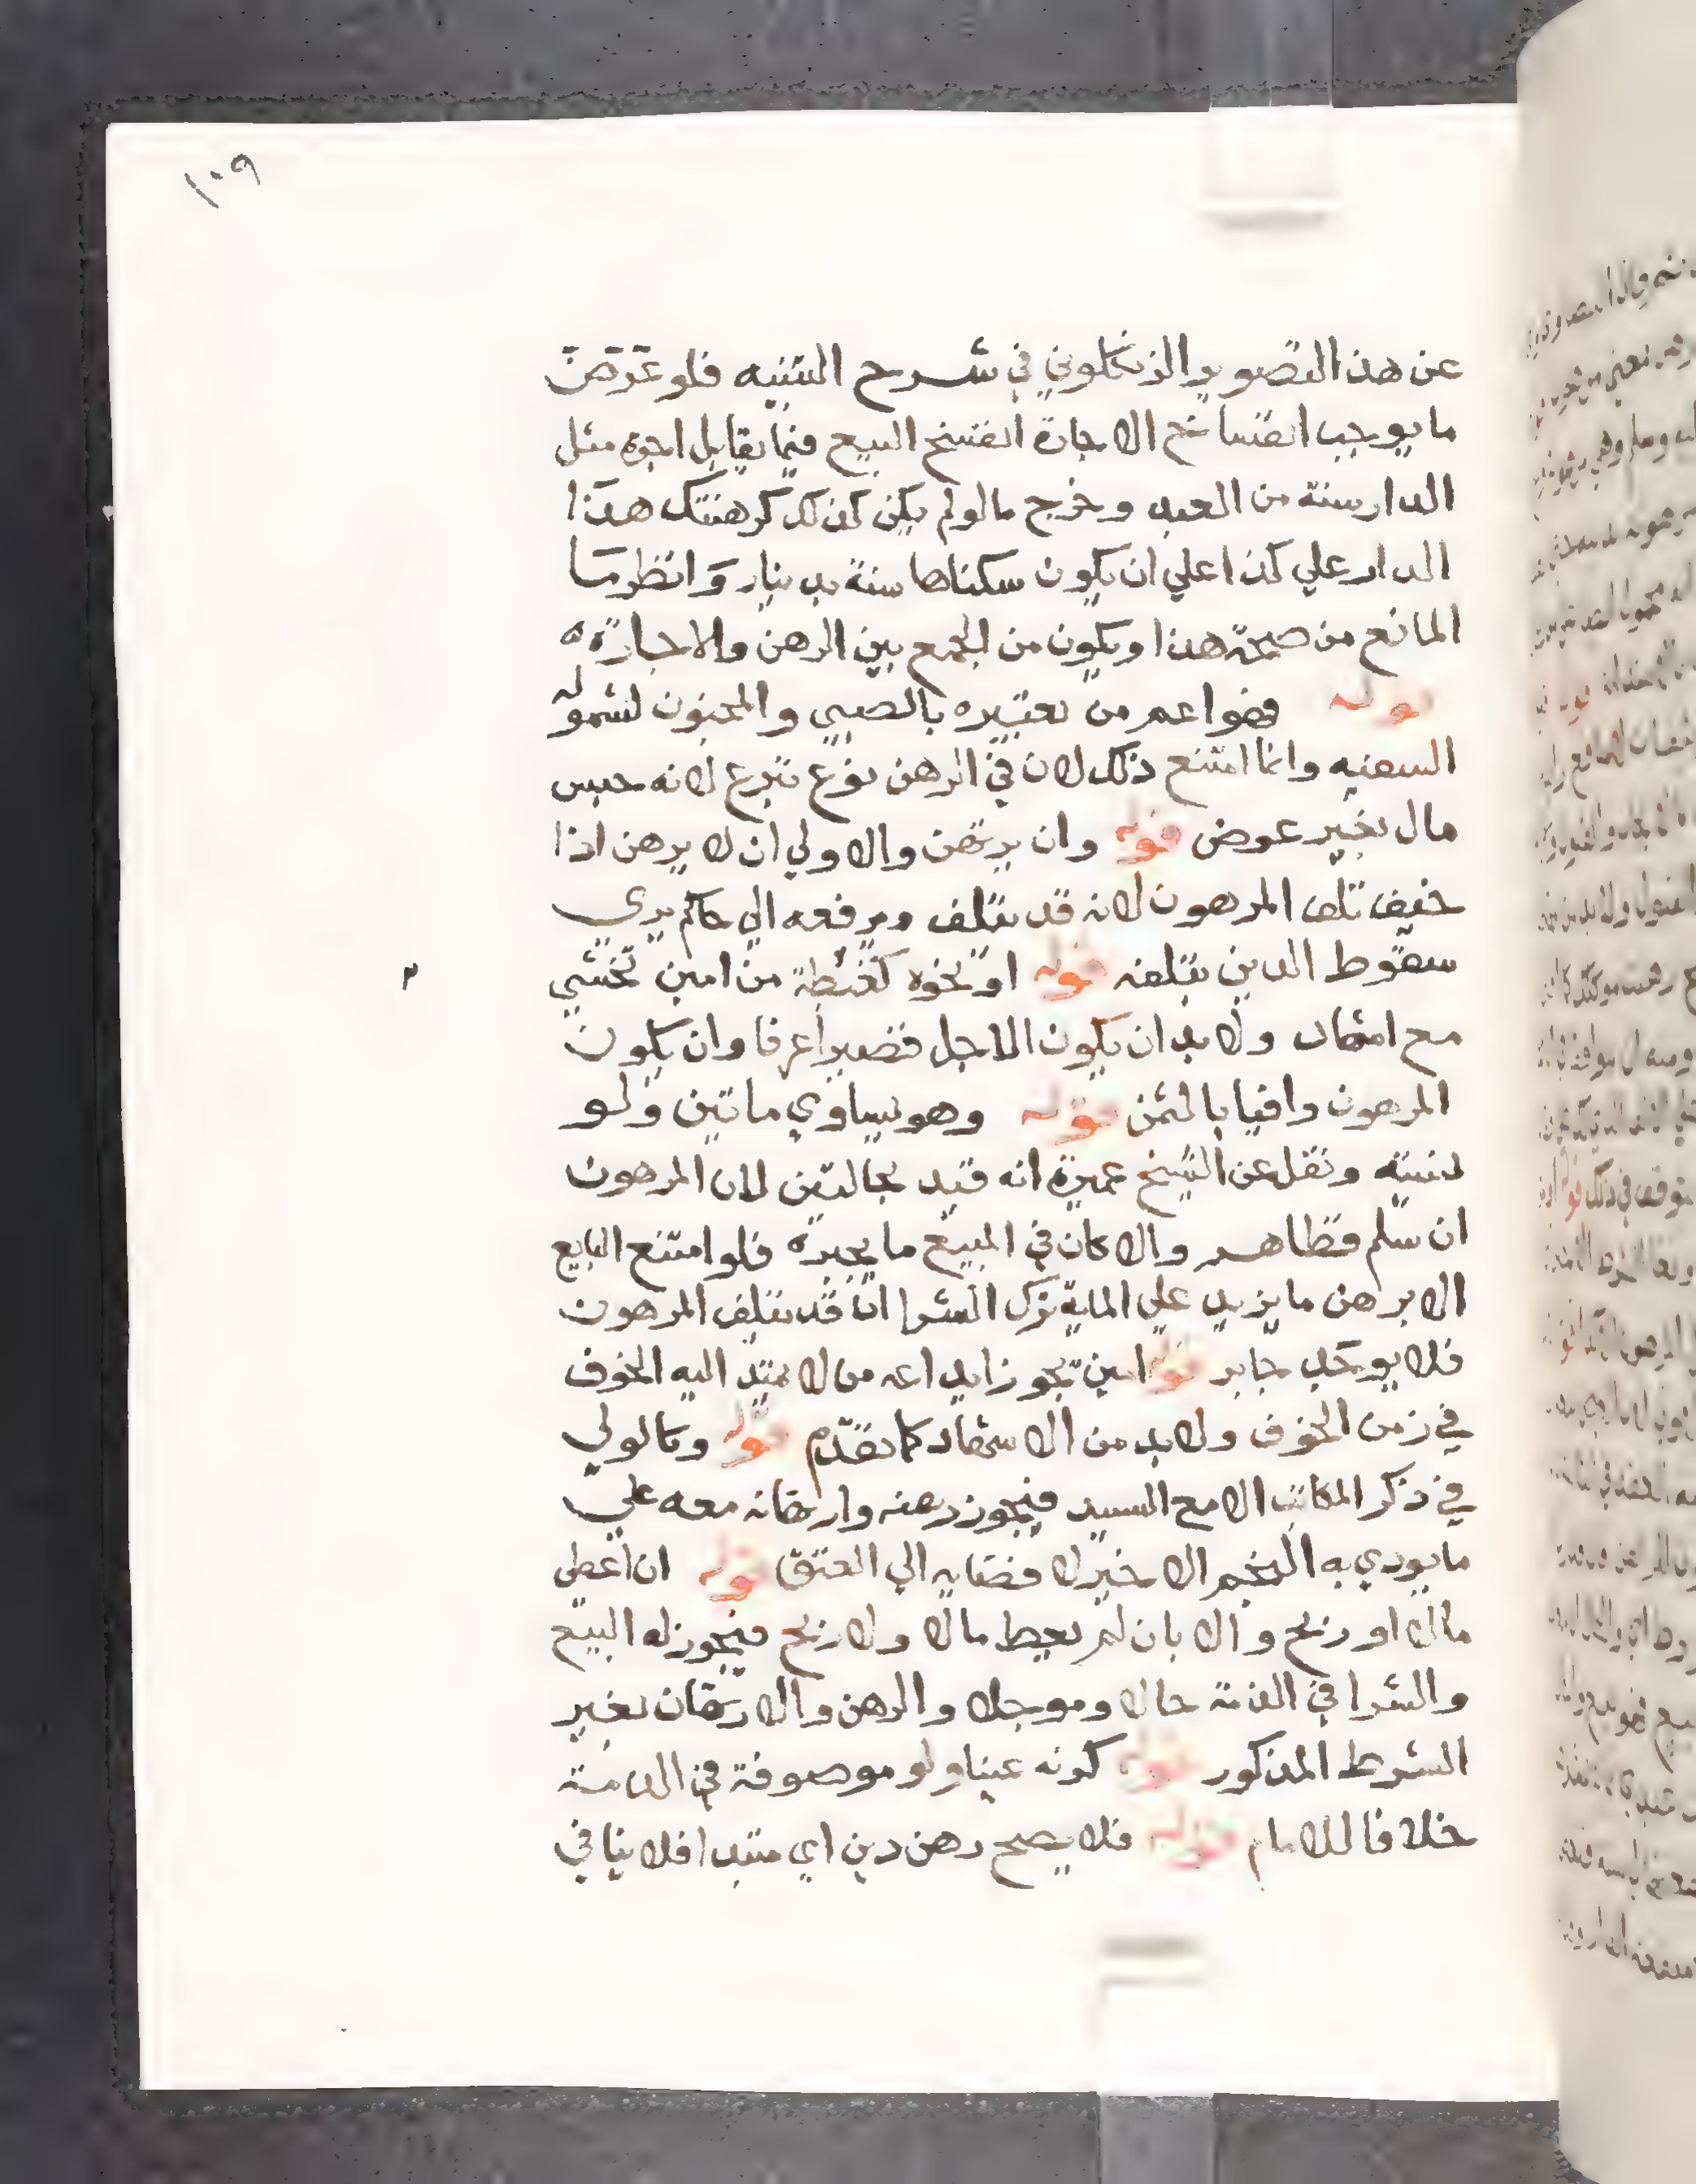 ١٠٩
عن هذا التصوير الزنكلوني في شرح التنبيه فلو عرض
ما يوجب انفساخ الاجارة انفسخ البيع فيما يقابل اجرة مثل
الدار سنة من العبد وخرج مالولم يكن كذلك كرهنتك هذا
الدار علي كذا علي ان يكون سكناها سنة بدينار وانظر ما
المانع من صحة هذا ويكون من الجمع بين الرهن والاجارة
قوله فهو اعم من تعبيره بالصبي والمجنون لشموله
السفيه وانما امتنع ذلك لان في الرهن نوع تبرع لانه حبس
مال بغير عوض قوله وان يرتهن والاولي ان لا يرهن اذا
خيف تلف المرهون لانه قد يتلف ويرفعه الي حاكم يري
سقوط الدين بتلفه قوله او نحوه كغبطة من امين غني
مع اشهاد ولا بد ان يكون الاجل قصيرا عرفا وان يكون
المرهون وافيا بالثمن قوله وهو يساوي ماتين ولو
نسية ونقل عن الشيخ عميرة انه قيد بحالتين لان المرهون
ان سلم فظاهر والا كان في المبيع ما يجبره فلو امتنع البايع
الا برهن ما يزيد علي الماية ترك الشرا اذ قد يتلف المرهون
فلا يوجد جابر قوله امين يجوز ايداعه من لا يمتد اليه الخوف
في زمن الخوف ولا بد من الاشهاد كما تقدم قوله وكالولي
في ذكر المكاتب الا مع السيد فيجوز رهنه وارتهانه معه علي
ما يودي به النجم الاخير لافضايه الي العتق قوله ان اعطي
مالا او ربح والا بان لم يعط مالا ولا ربح فيجوز له البيع
والشرا في الذمة حالا وموجلا والرهن والارتهان بغير
الشرط المذكور قوله كونه عينا ولو موصوفة في الذمة
خلافا للامام قوله فلا يصح رهن دين اي مبتدا فلا ينافي